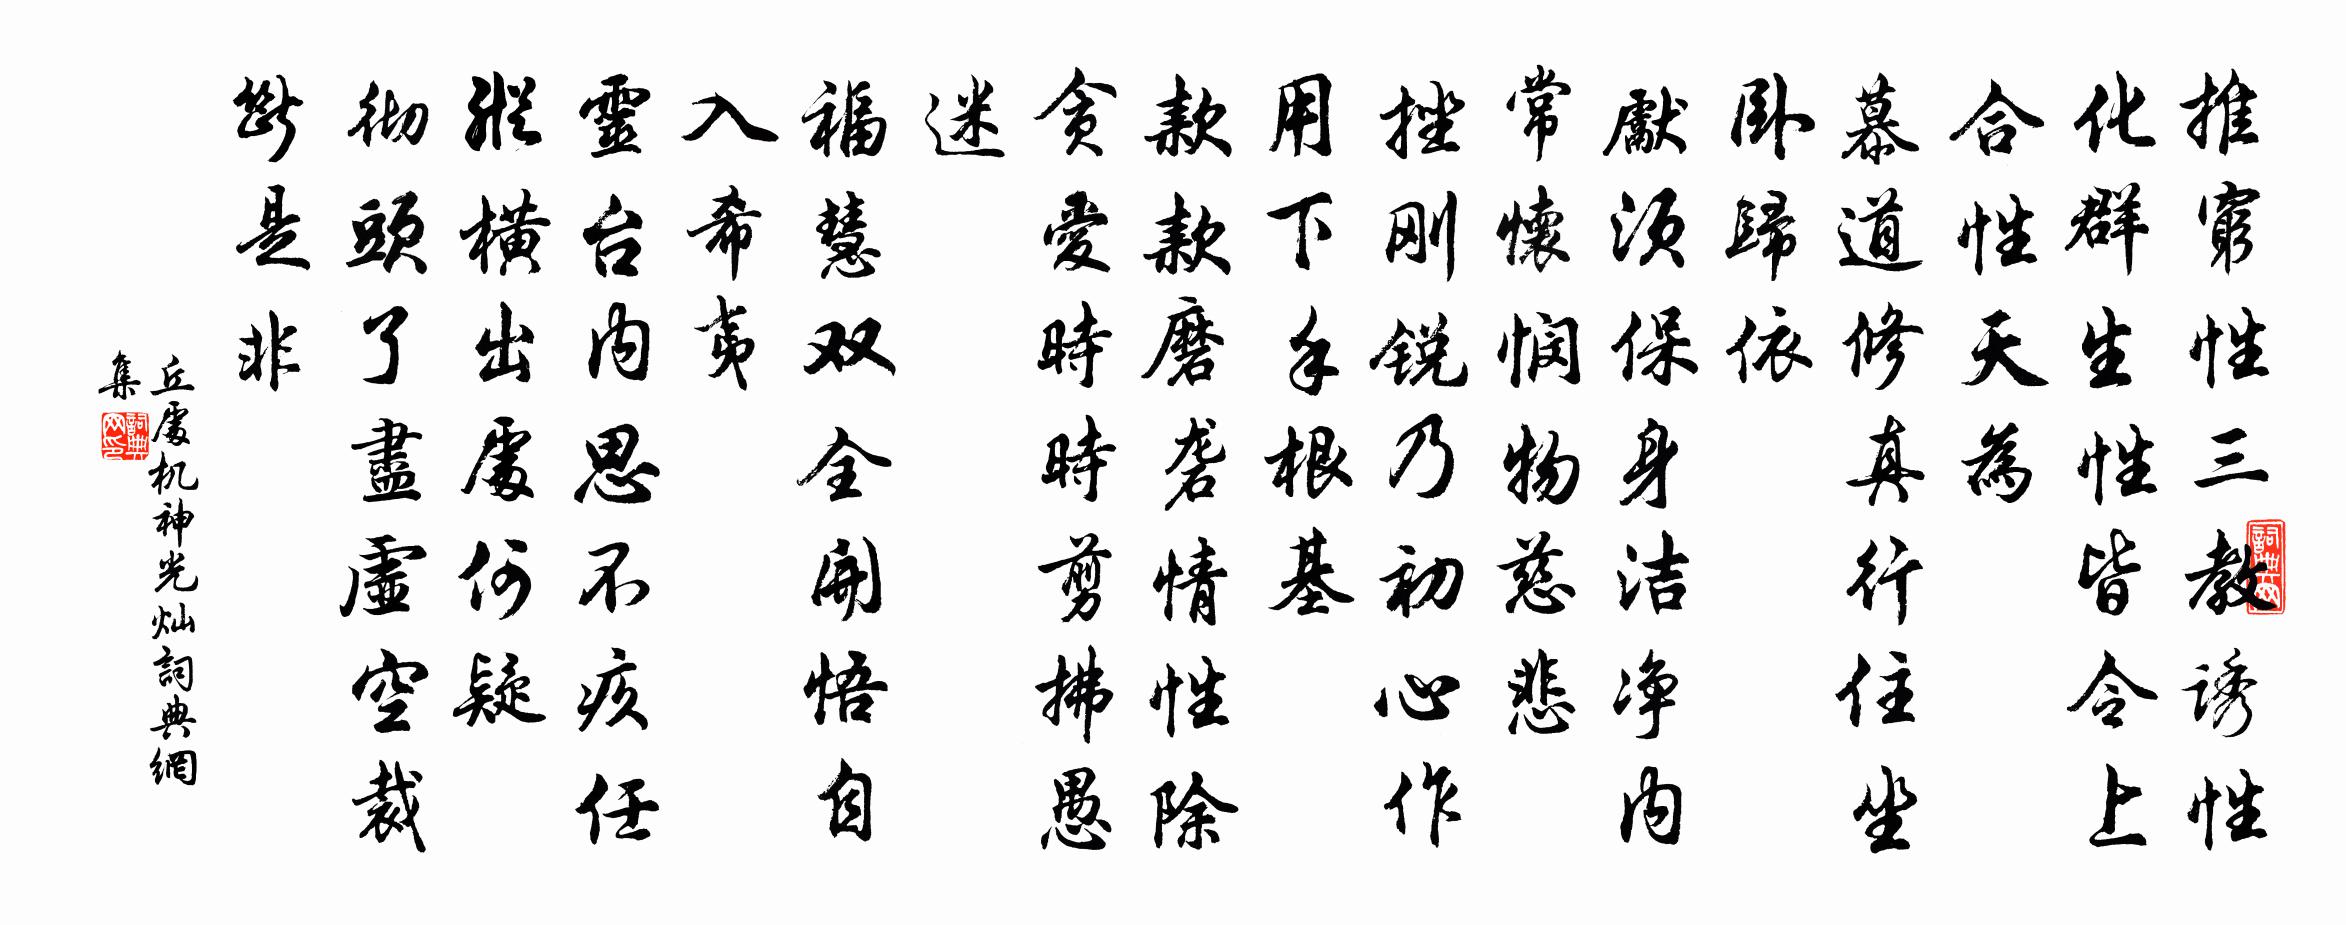 推窮性三教誘性
化群生性皆令上
合性天為
慕道修真行住坐
卧歸依
獻須保身洁净内
常懷憫物慈悲
挫刚锐乃初心作
用下手根基
款款磨砻情性除
贪愛時時剪拂愚
迷
福慧双全開悟自
入希夷
靈台内思不疚任
縱橫出處何疑
彻頭了盡虛空裁
斷是非
丘處机神光灿詞典網
集